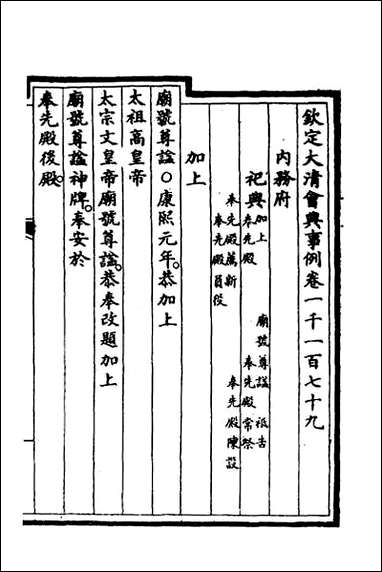 欽定大清會典事例卷一千一百七十九
內務府
祀典 加上 廟號尊謚 祗告
奉先殿 奉先殿常祭
奉先殿薦新 奉先殿陳設
奉先殿員役
加上
廟號尊謚○康熙元年。恭加上
太祖高皇帝
太宗文皇帝廟號尊謚。恭奉改題加上
廟號尊謚神牌。奉安於
奉先殿後殿。